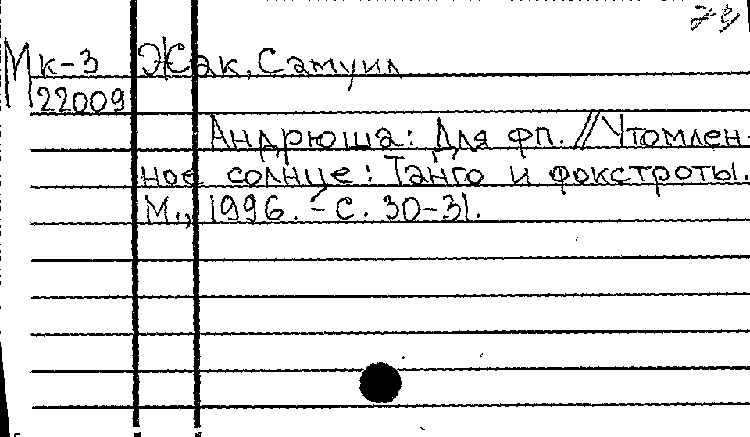 Мк-3 Жак, Самуил
22009
Андрюша: Для фп. // Утомлен-
ное солнце: Танго и фокстроты.
М., 1996. - С. 30-31.